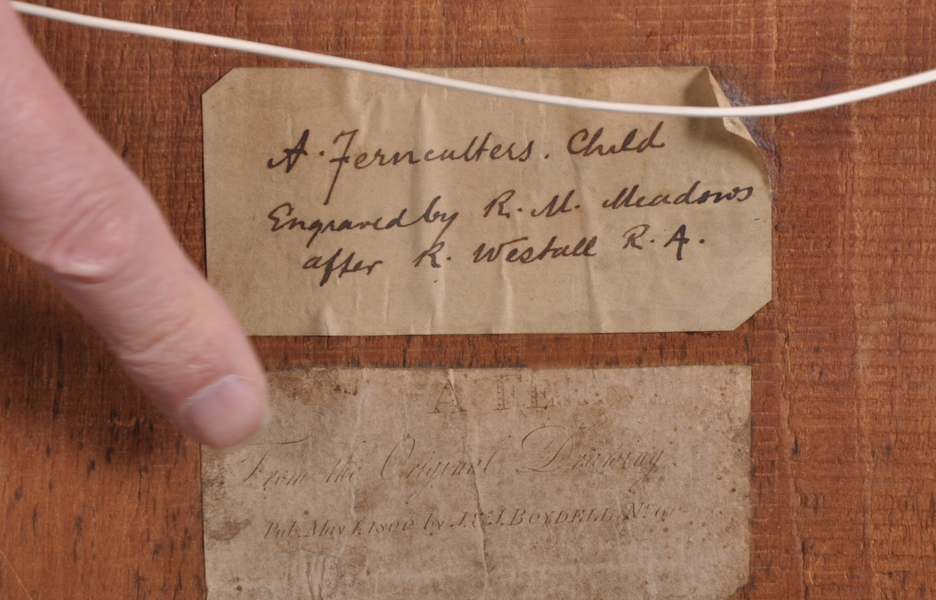 A. Ferncutters. Child
Engraved by R. M. Meadows
after R. Westall R. A.
A FE
From the Original Drawing
Pub. May 1 1800 by J. & J. BOYDELL, No.